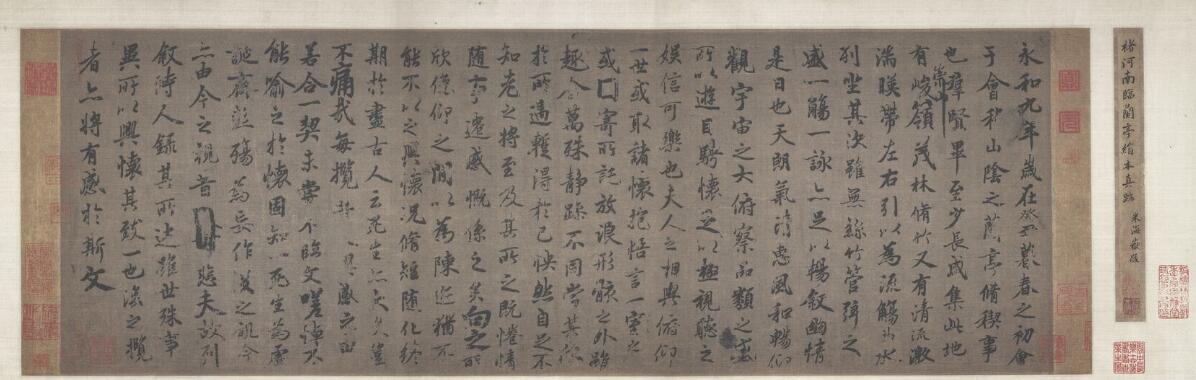 褚河南臨蘭亭絹本真跡 米海嶽跋
永和九年歲在癸丑暮春之初會
于會稽山陰之蘭亭脩稧事
也群賢畢至少長咸集此地
有崇山峻領茂林脩竹又有清流激
湍暎帶左右引以為流觴曲水
列坐其次雖無絲竹管弦之
盛一觴一詠亦足以暢敘幽情
是日也天朗氣清惠風和暢仰
觀宇宙之大俯察品類之盛
所以遊目騁懷足以極視聽之
娛信可樂也夫人之相與俯仰
一世或取諸懷抱悟言一室之
或因寄所託放浪形骸之外雖
趣舍萬殊靜躁不同當其欣
於所遇蹔得於己怏然自足不
知老之將至及其所之既惓情
隨事遷感慨係之矣向之所
欣俛仰之間以為陳迹猶不
能不以之興懷況脩短隨化終
期於盡古人云死生亦大矣豈
不痛哉每攬昔人興感之由
若合一契未嘗不臨文嗟悼不
能喻之於懷固知一死生為虛
誕齊彭殤為妄作後之視今
亦由今之視昔悲夫故列
敘時人錄其所述雖世殊事
異所以興懷其致一也後之攬
者亦將有感於斯文